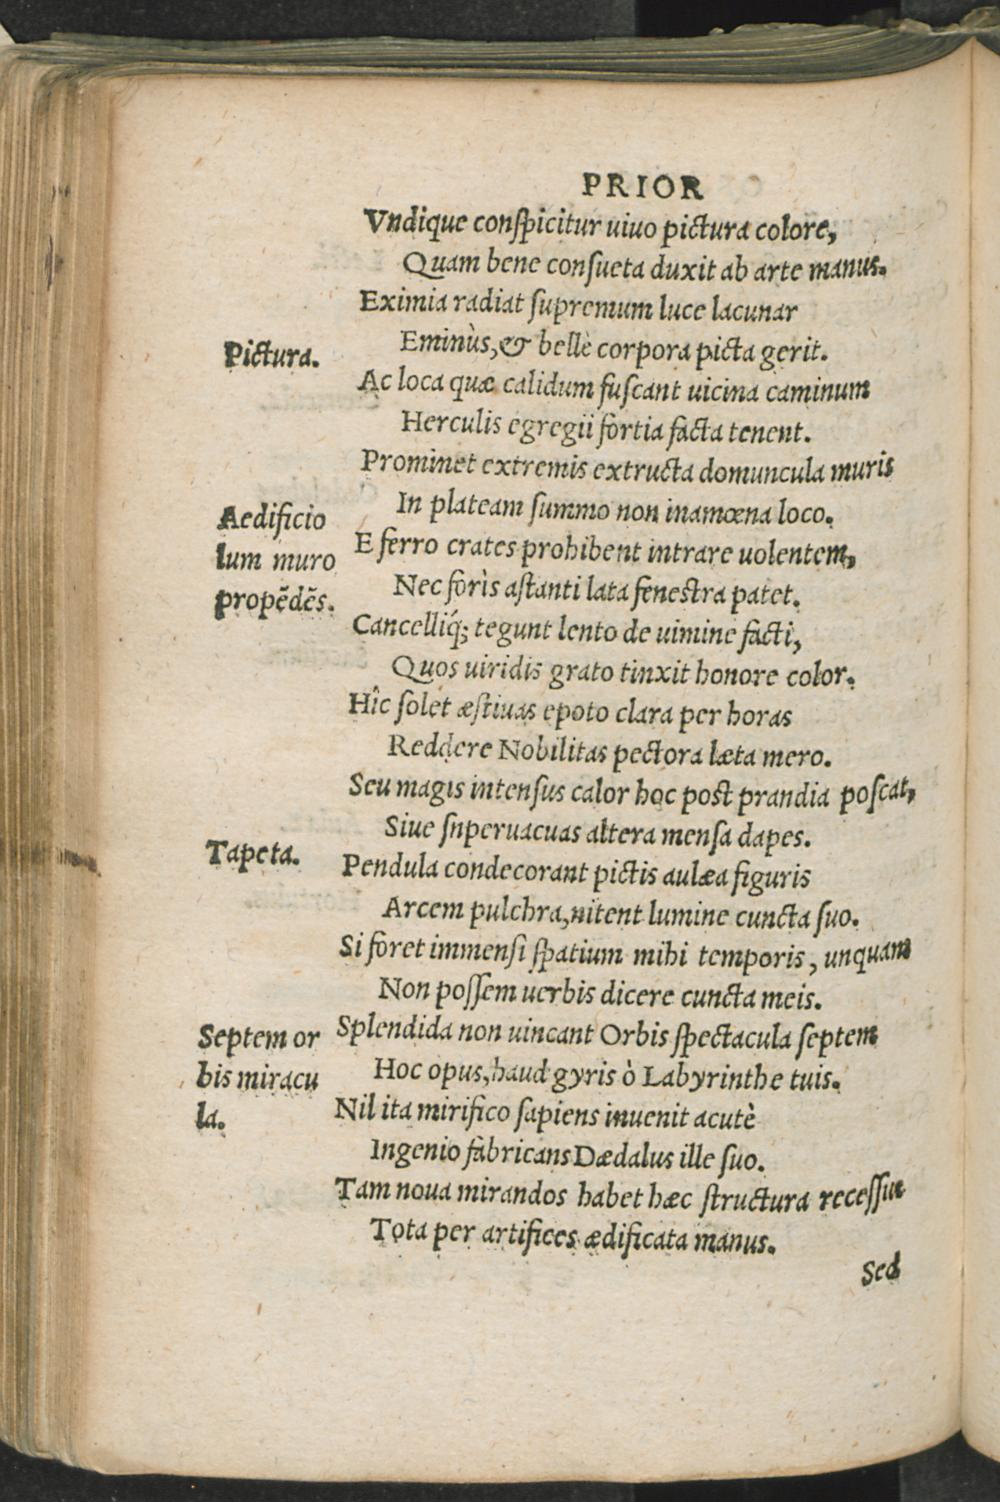 PRIOR
Vndique conſpicitur uiuo pictura colore,
Quam bene conſueta duxit ab arte manus.
Eximia radiat ſupremum luce lacunar
Pictura.
Eminùs, & bellè corpora picta gerit.
Ac loca quæ calidum fuſcant uicina caminum
Herculis egregii fortia facta tenent.
Prominet extremis extructa domuncula muris
Aedificio
In plateam ſummo non inamœna loco.
lum muro
E ferro crates prohibent intrare uolentem,
propẽdẽs.
Nec forìs aſtanti lata feneſtra patet.
Cancelliq́; tegunt lento de uimine facti,
Quos uiridis grato tinxit honore color.
Hîc ſolet æſtiuas epoto clara per horas
Reddere Nobilitas pectora læta mero.
Seu magis intenſus calor hoc poſt prandia poſcat,
Siue ſnperuacuas altera menſa dapes.
Tapeta.
Pendula condecorant pictis aulæa figuris
Arcem pulchra, nitent lumine cuncta ſuo.
Si foret immenſi ſpatium mihi temporis, unquam
Non poſſem uerbis dicere cuncta meis.
Septem or
Splendida non uincant Orbis ſpectacula ſeptem
bis miracu
Hoc opus, haud gyris ò Labyrinthe tuis.
la.
Nil ita mirifico ſapiens inuenit acutè
Ingenio fabricans Dædalus ille ſuo.
Tam noua mirandos habet hæc ſtructura receſſus
Tota per artifices ædificata manus.
Sed